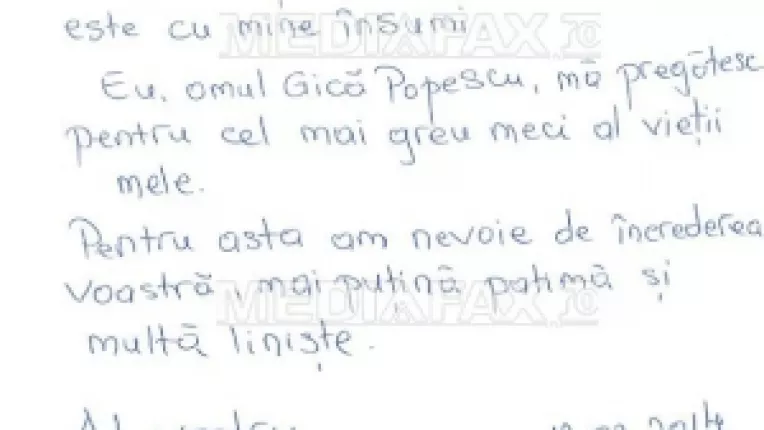 este cu mine însumi
MEDIAFAX.RO
Eu, omul Gică Popescu, mă pregătesc
pentru cel mai greu meci al vieții
mele.
Pentru asta am nevoie de încrederea
voastră, mai puțină patimă și
MEDIAFAX.RO
multă liniște.
2014